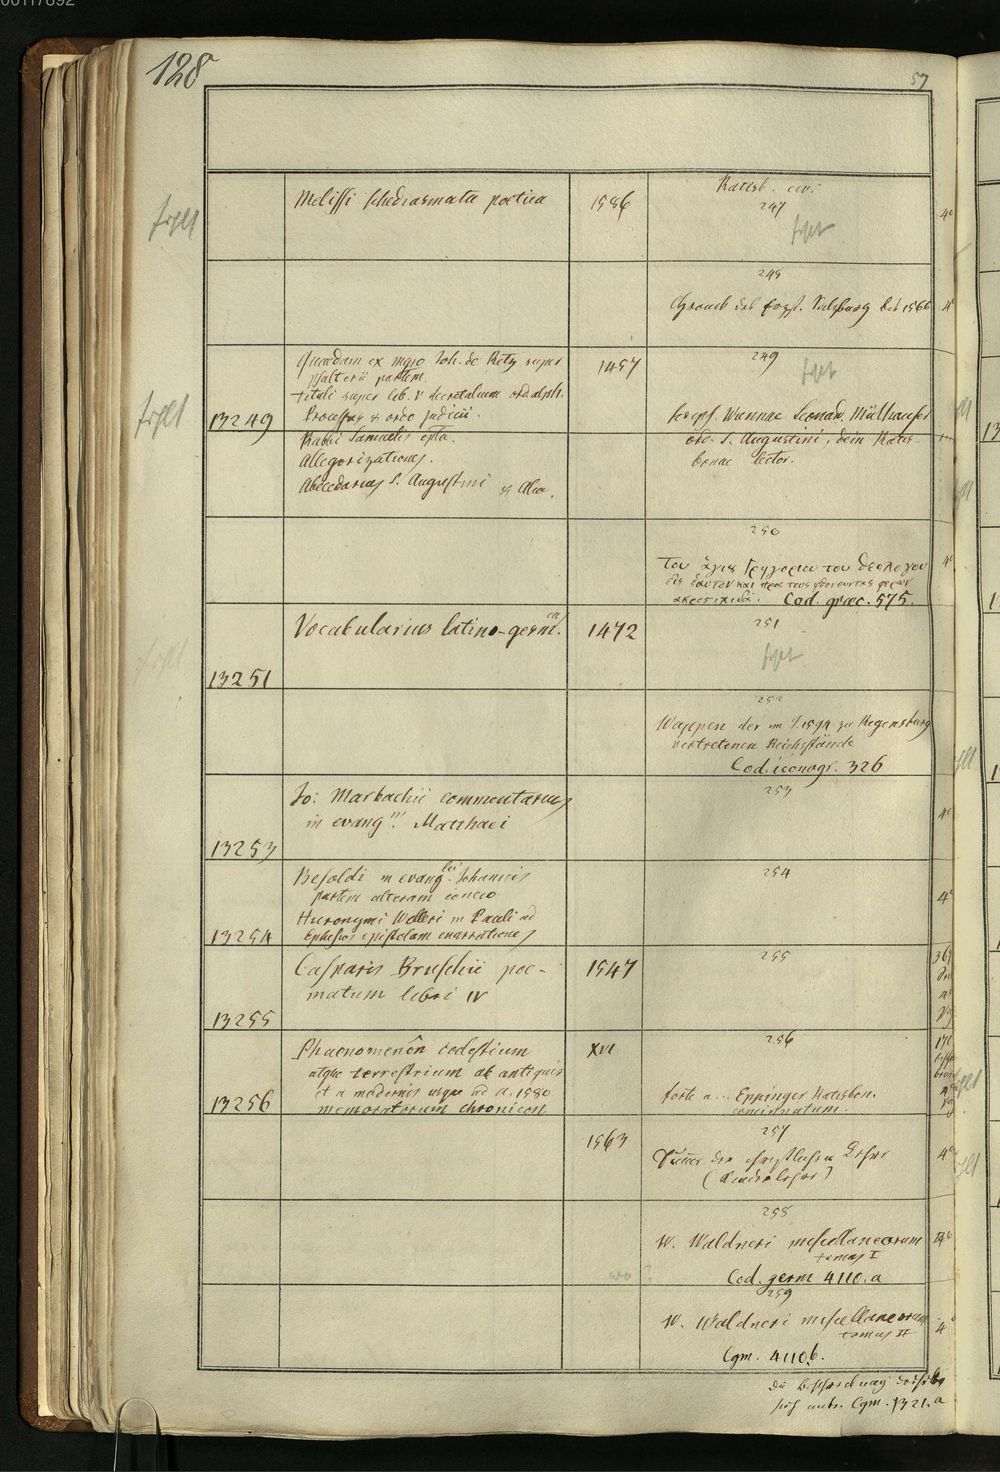 00117892
128
57
Melissi schediasmata poetica
1586
Ratisb. civ.
247
fehlt
fehlt
4°
248
bis 1566
4°
13249
Quaedam ex mgro Joh. de Retz super
psalterii partem.
tituli super lib. V decretalium ord. alph.
Processus & ordo judicii.
Rabbi Samuelis epla.
Allegorizationes.
Abecedarius S. Augustini & alia.
1457
249
fehlt
fehlt
script. Wannae Leonard.
ord. S. Augustini, dein Ratis
bonae lector.
250
Του ἁγιου Γρηγοριου του θεολογου
εις ἑαυτον και προς τους φθονουντας
Cod. graec. 575.
4°
13251
Vocabularius latino-germ.
1472
251
fehlt
fehlt
252
Wappen der im J. 1594 zu Regensburg
vertretenen Reichsstände
Cod. iconogr. 326
13253
Jo: Marbachii commentarius
in evang. Matthaei
253
4°
13254
Besoldi in evang. Johannis
partem alteram concio
Hieronymi Welleri in Pauli ad
Ephesios epistolam enarrationes
254
4°
13255
Casparis Bruschii poe-
matum libri IV
1547
255
13256
Phaenomenôn coelestium
atque terrestrium ab antiquis
et a modernis usque ad a. 1580
memoratorum chronicon
XVI
256
forte a... Eppinger Ratisbon.
concinnatum.
1563
257
der christlichen Lehre
4°
258
W. Waldneri miscellaneorum
tomus I
Cod. germ 4110.a
wo ?
259
W. Waldneri miscellaneorum
tomus II
Cgm. 4110b.
4°
die Beschreibung
sich unter Cgm. 1321.a